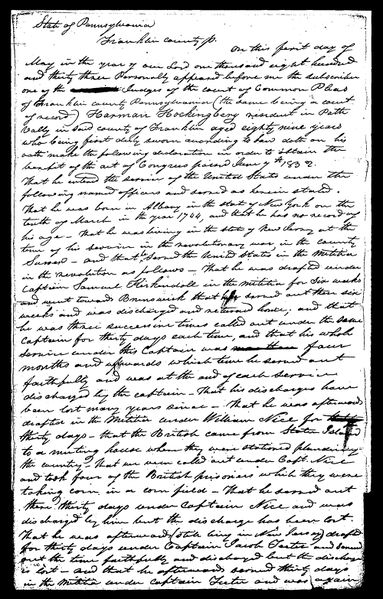 State of Pennsylvania
Franklin County ss.
On this first day of
May in the year of our Lord one thousand eight hundred
and thirty three Personally appeared before me the subscriber
one of the Judges of the court of Common Pleas
of Franklin county Pennsylvania (the same being a court
of record) Harman Hockingberg resident in Path
Vally in said county of Franklin aged eighty nine years
who being first duly sworn according to law doth on his
oath make the following declaration in order to obtain the
benefit of the act of Congress passed June 7th 1832.
That he entered the service of the United States under the
following named officers and served as herein stated.
That he was born in Albany in the state of New York on the
tenth of March in the year 1744, and that he has no record of
his age - That he was living in the state of New Jersey at the
time of his service in the revolutionary war, in the county
Sussex - and that served the United States in the Militia
in the revolution as follows - That he was drafted under
Captain Samuel in the militia for six weeks
and went toward Brunswick that he served out the six
weeks and was discharged and returned home; and that
he was three successive times called out under the same
Captain for thirty days each time, and that his whole
service under this Captain was four
months and upwards which time he served out
faithfully and was at the end of each service
discharged by the captain - That his discharges have
been lost many years since - That he was afterward
drafted in the Militia under William Nice for
thirty days - that the British came from Staten Island
to a meeting house where they were stationed plundering
the country - that we were called out under Capt. Nice
and took four of the British prisoners which they were
taking corn in a corn field - That he served out
these thirty days under Captain Nice and was
discharged by him but the discharge has been lost
That he was afterward (still living in New Jersey) drafted
for thirty days under Captain Jacob and served
out the time faithfully and discharged but the discharge
is lost - and that he afterward served thirty days
in the Militia under Captain and was again